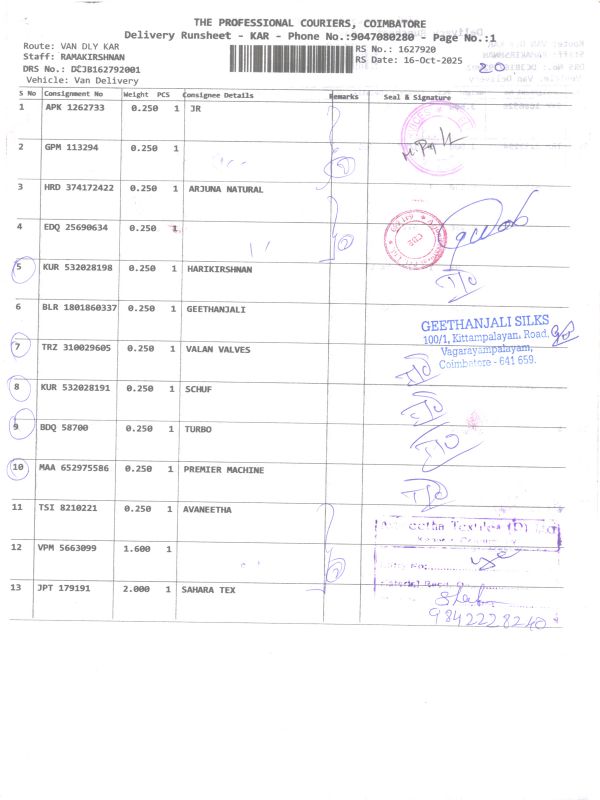 THE PROFESSIONAL COURIERS, COIMBATORE
Delivery Runsheet - KAR - Phone No.:9047080280 - Page No.:1
Route: VAN DLY KAR
RS No.: 1627920
Staff: RAMAKIRSHNAN
RS Date: 16-Oct-2025 20
DRS No.: DCJB162792001
Vehicle: Van Delivery
S No Consignment No Weight PCS Consignee Details Remarks Seal & Signature
1 APK 1262733 0.250 1 JR
2 GPM 113294 0.250 1
3 HRD 374172422 0.250 1 ARJUNA NATURAL
4 EDQ 25690634 0.250 1
5 KUR 532028198 0.250 1 HARIKIRSHNAN T/O
6 BLR 1801860337 0.250 1 GEETHANJALI
GEETHANJALI SILKS
100/1, Kittampalayan, Road,
Vagarayampalayam,
Coimbatore - 641 659.
7 TRZ 310029605 0.250 1 VALAN VALVES T/O
8 KUR 532028191 0.250 1 SCHUF T/O
9 BDQ 58700 0.250 1 TURBO T/O
10 MAA 652975586 0.250 1 PREMIER MACHINE T/O
11 TSI 8210221 0.250 1 AVANEETHA
12 VPM 5663099 1.600 1
13 JPT 179191 2.000 1 SAHARA TEX
9842228240